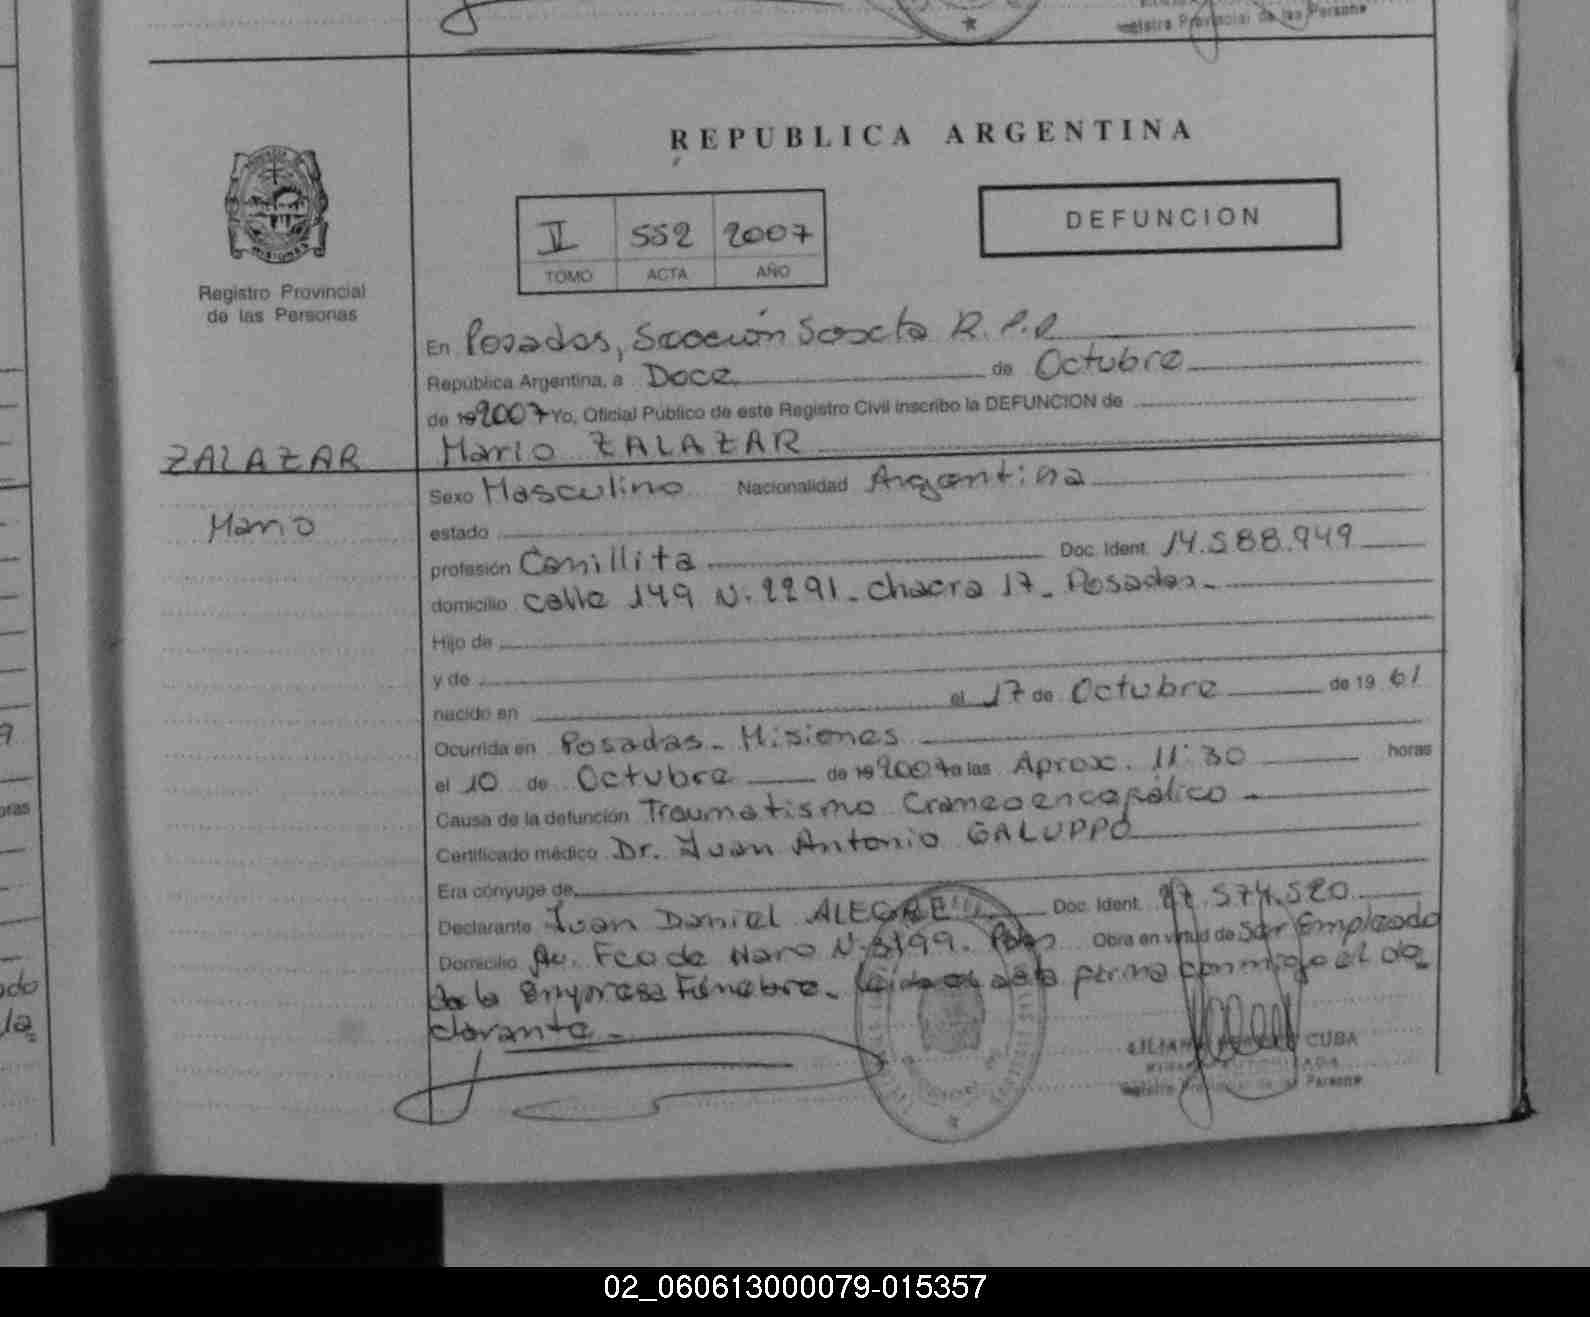 REPUBLICA ARGENTINA
DEFUNCION
II 552 2007
TOMO ACTA AÑO
PROVINCIA DE
MISIONES
Registro Provincial
de las Personas
En Posadas, Sección Sexta R.P.P
República Argentina, a Doce de Octubre
de 19 2007 Yo, Oficial Público de este Registro Civil inscribo la DEFUNCION de
Mario ZALAZAR
ZALAZAR
Mario
Sexo Masculino Nacionalidad Argentina
estado
profesión Canillita Doc. Ident. 14.588.949
domicilio calle 149 N. 2291 - chacra 17 - Posadas -
Hijo de
y de
nacido en el 17 de Octubre de 19 61
Ocurrida en Posadas - Misiones
el 10 de Octubre de 19 2007 a las Aprox. 11:30 horas
Causa de la defunción Traumatismo Craneoencefálico -
Certificado médico Dr. Juan Antonio GALUPPO
Era cónyuge de
Declarante Juan Daniel ALEGRE Doc. Ident. 27.574.520
Domicilio Av. Fco de Haro N. 3199 - Obra en virtud de Ser Empleado
de la Empresa Fúnebre - Leída el acta firma conmigo el de
clarante -
CUBA
Registro Provincial de las Persona
02_060613000079-015357